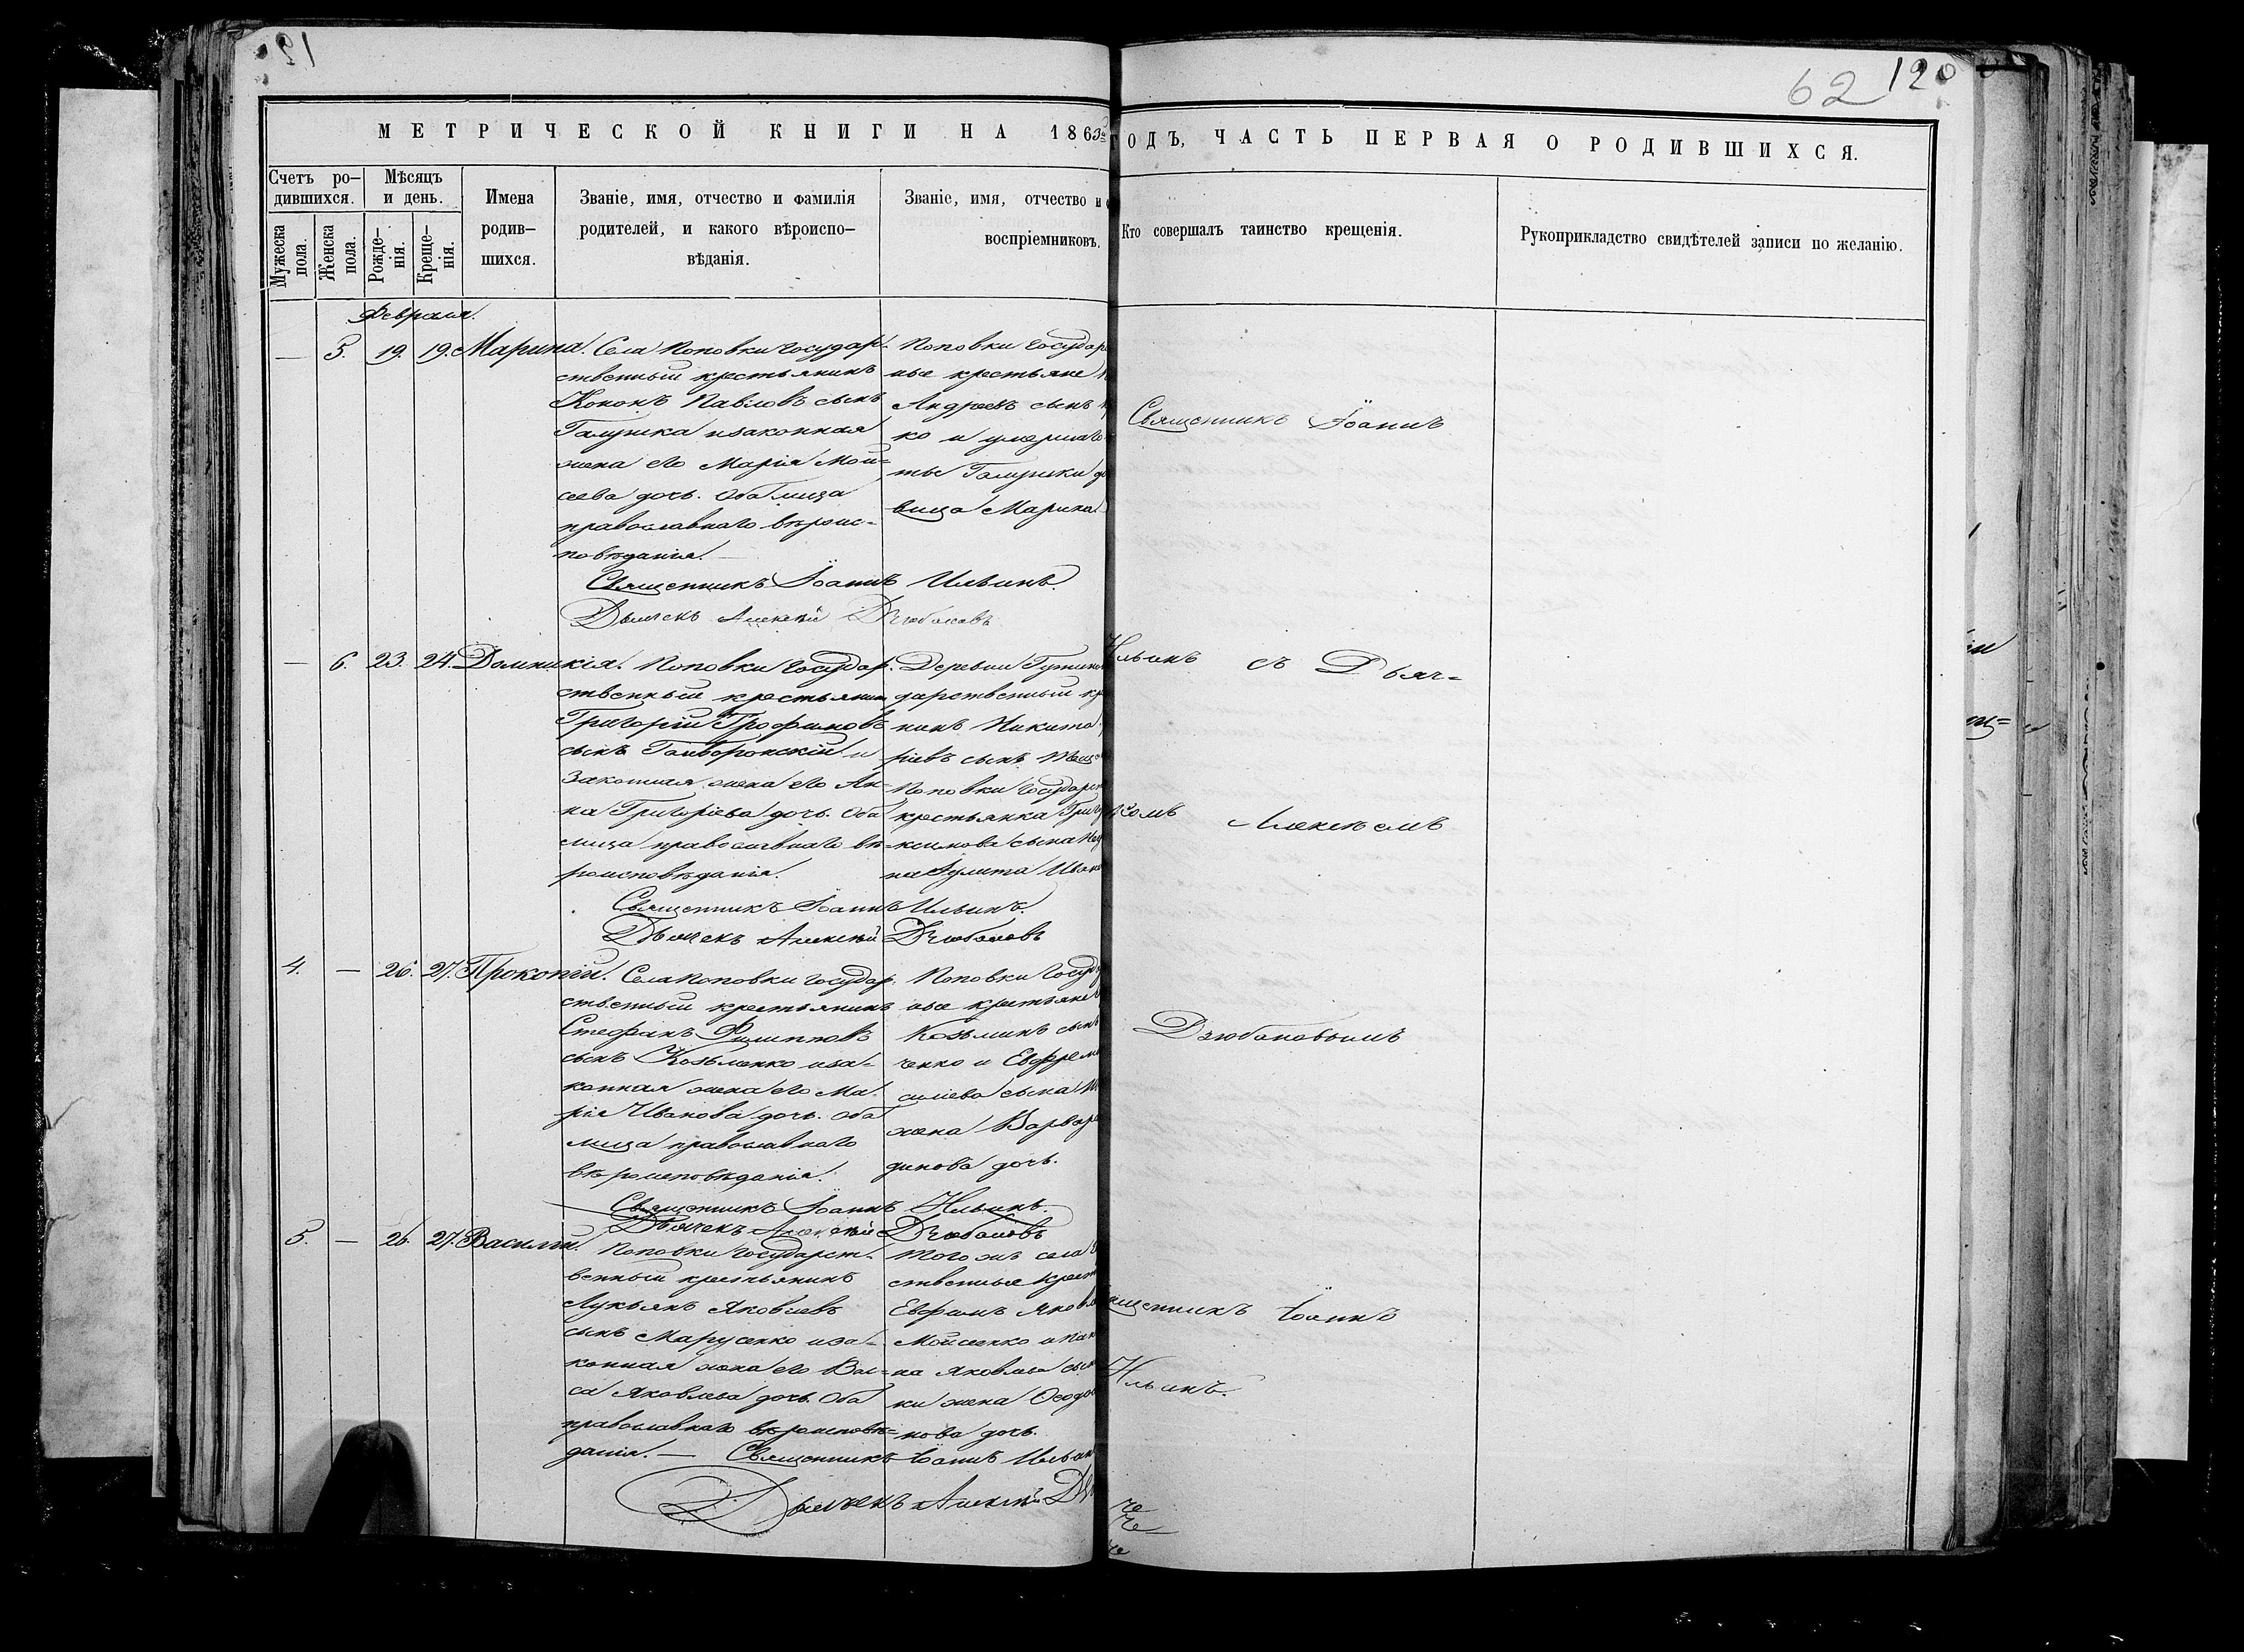 120
62
МЕТРИЧЕСКОЙ КНИГИ НА 1863й
ГОДЪ, ЧАСТЬ ПЕРВАЯ О РОДИВШИХСЯ.
Счетъ ро-
дившихся.
Мужеска
пола.
Женска
пола.
Мѣсяцъ
и день.
Рожде-
нія.
Креще-
нія.
Имена
родив-
шихся.
Званіе, имя, отчество и фамилія
родителей, и какого вѣроиспо-
вѣданія.
Званіе, имя, отчество и
воспріемниковъ.
Кто совершалъ таинство крещенія.
Рукоприкладство свидѣтелей записи по желанію.
Февраля.
— 5. 19. 19. Марина.
Села Поповки государ-
ственный крестьянинъ
Кононъ Павловъ сынъ
Галушка и законная
жена его Марія Мой-
сеева дочь. Оба лица
православнаго вѣроис-
повѣданія.
Поповки государ
ные крестьяне
Андреевъ сынъ
ко и умершаго
Галушки
вица Марина
Священникъ Іоаннъ Ильинъ.
Дьячекъ Алексѣй Дзюбановъ
— 6. 23. 24. Домникія.
Поповки государ-
ственный крестьянин
Григорій Трофимовъ
сынъ Гайворонскій и
законная жена его Ан-
на Григорьева дочь. Оба
лица православнаго вѣ-
роисповѣданія.
Деревни
дарственный кр
нинъ Никита
ріевъ сынъ
Поповки государст
крестьянка Григ
ксимова сына
на Іулита Ивано
Священникъ Іоаннъ Ильинъ.
Дьячекъ Алексѣй Дзюбановъ
4. — 26. 27. Прокопій.
Села Поповки государ-
ственный крестьянинъ
Стефанъ Филипповъ
сынъ Козьменко и за-
конная жена его Ма-
рія Иванова дочь. Оба
лица православнаго
вѣроисповѣданія.
Поповки госуд
ные крестьяне
Козьминъ сынъ
ченко и Евфрем
силіева сына
жена Варвара
динова дочь.
Священникъ Іоаннъ Ильинъ.
Дьячекъ Алексѣй Дзюбановъ
5. — 26. 27. Василій.
Поповки государст-
венный крестьянинъ
Лукьянъ Яковлевъ
сынъ Марусенко и за-
конная жена его Вас-
са Яковлева дочь. Оба
православнаго вѣроисповѣ-
данія. —
Того жъ села
ственные крест
Евфимъ Яковл
Мойсенко и
на Яковлева сын
ки жена Ѳеодо
нова дочь.
Священникъ Іоаннъ Ильин
Дьячекъ Алексѣй Дз
Священникъ Іоаннъ
Ильинъ съ Дьяч-
комъ Алексѣемъ
Дзюбановымъ
щенникъ Іоаннъ
Ильинъ.